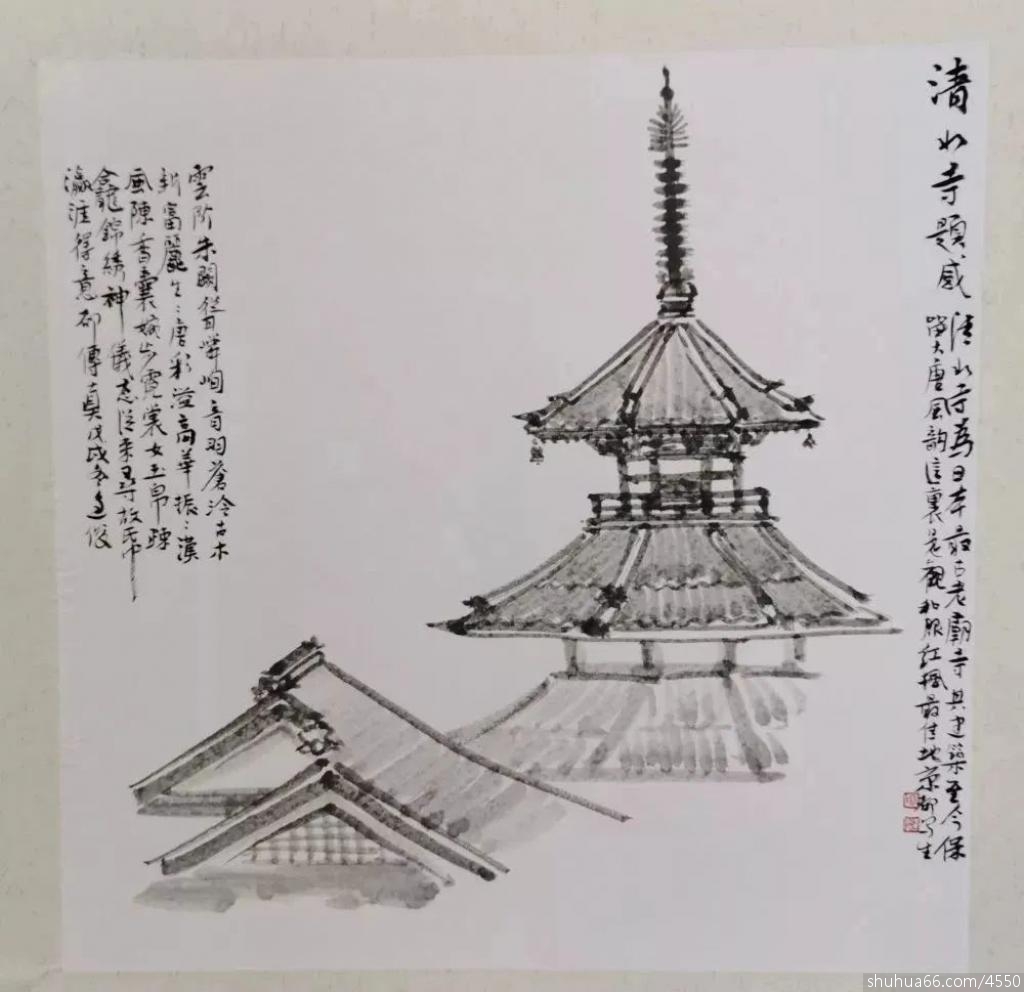 清水寺題感
清水寺為日本最古老廟寺其建築至今保
留大唐風韻這裏是觀和服紅楓最佳地京都写生
雲階朱闕聳嶙峋音羽蒼泠古木
新富麗生生唐彩溢高華振振漢
風陳香囊娥步霓裳女玉帛
龕錦綉神儀尋故
瀛涯得意却傳真戊戌冬
shuhua66.com/4550